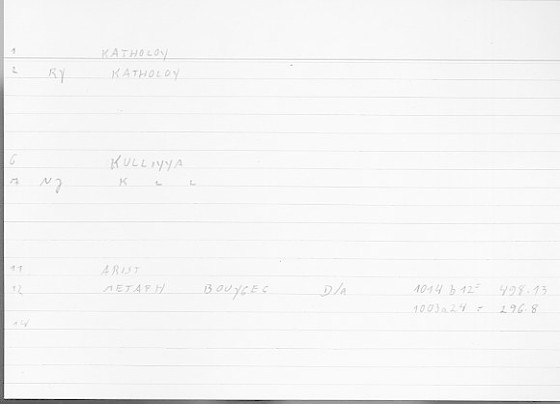 1 KATHOLOY
2 Ry KATHOLOY
6 KULLIYYA
7 Nj K L L
11 ARIST
12 METAPH BOUYGES D/a 1014 b 12 = 498.13
1003a24 = 296.8
14